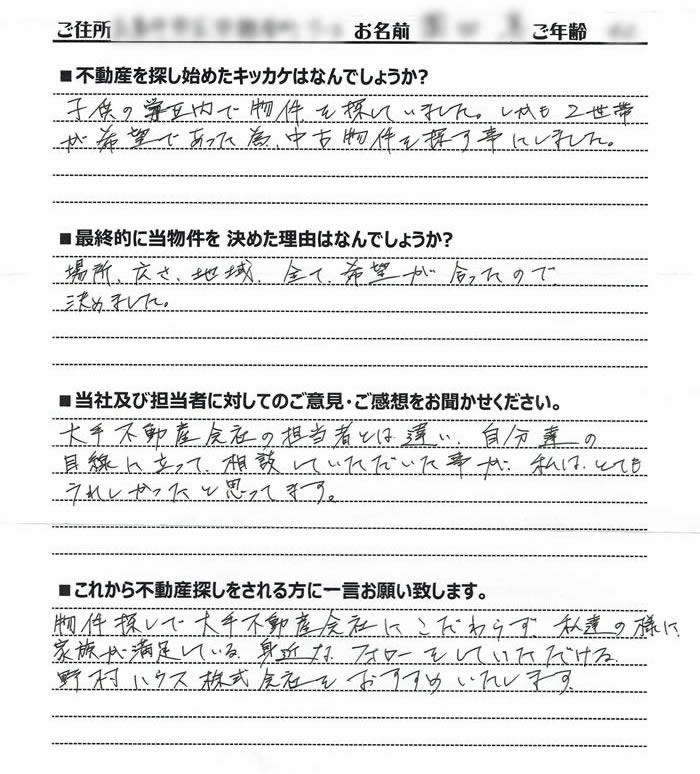 ご住所 お名前 ご年齢
■不動産を探し始めたキッカケはなんでしょうか?
子供の学区内で物件を探していました。しかも2世帯
が希望であった為、中古物件を探す事にしました。
■最終的に当物件を 決めた理由はなんでしょうか?
場所、広さ、地域、全て、希望が合ったので、
決めました。
■当社及び担当者に対してのご意見・ご感想をお聞かせください。
大手不動産会社の担当者とは違い、自分達の
目線に立って、相談していただいた事が、私は、とても
うれしかったと思ってます。
■これから不動産探しをされる方に一言お願い致します。
物件探しで大手不動産会社にこだわらず、私達の様に
家族が満足している、身近な、フォローをしていただける、
野村ハウス株式会社をおすすめいたします。